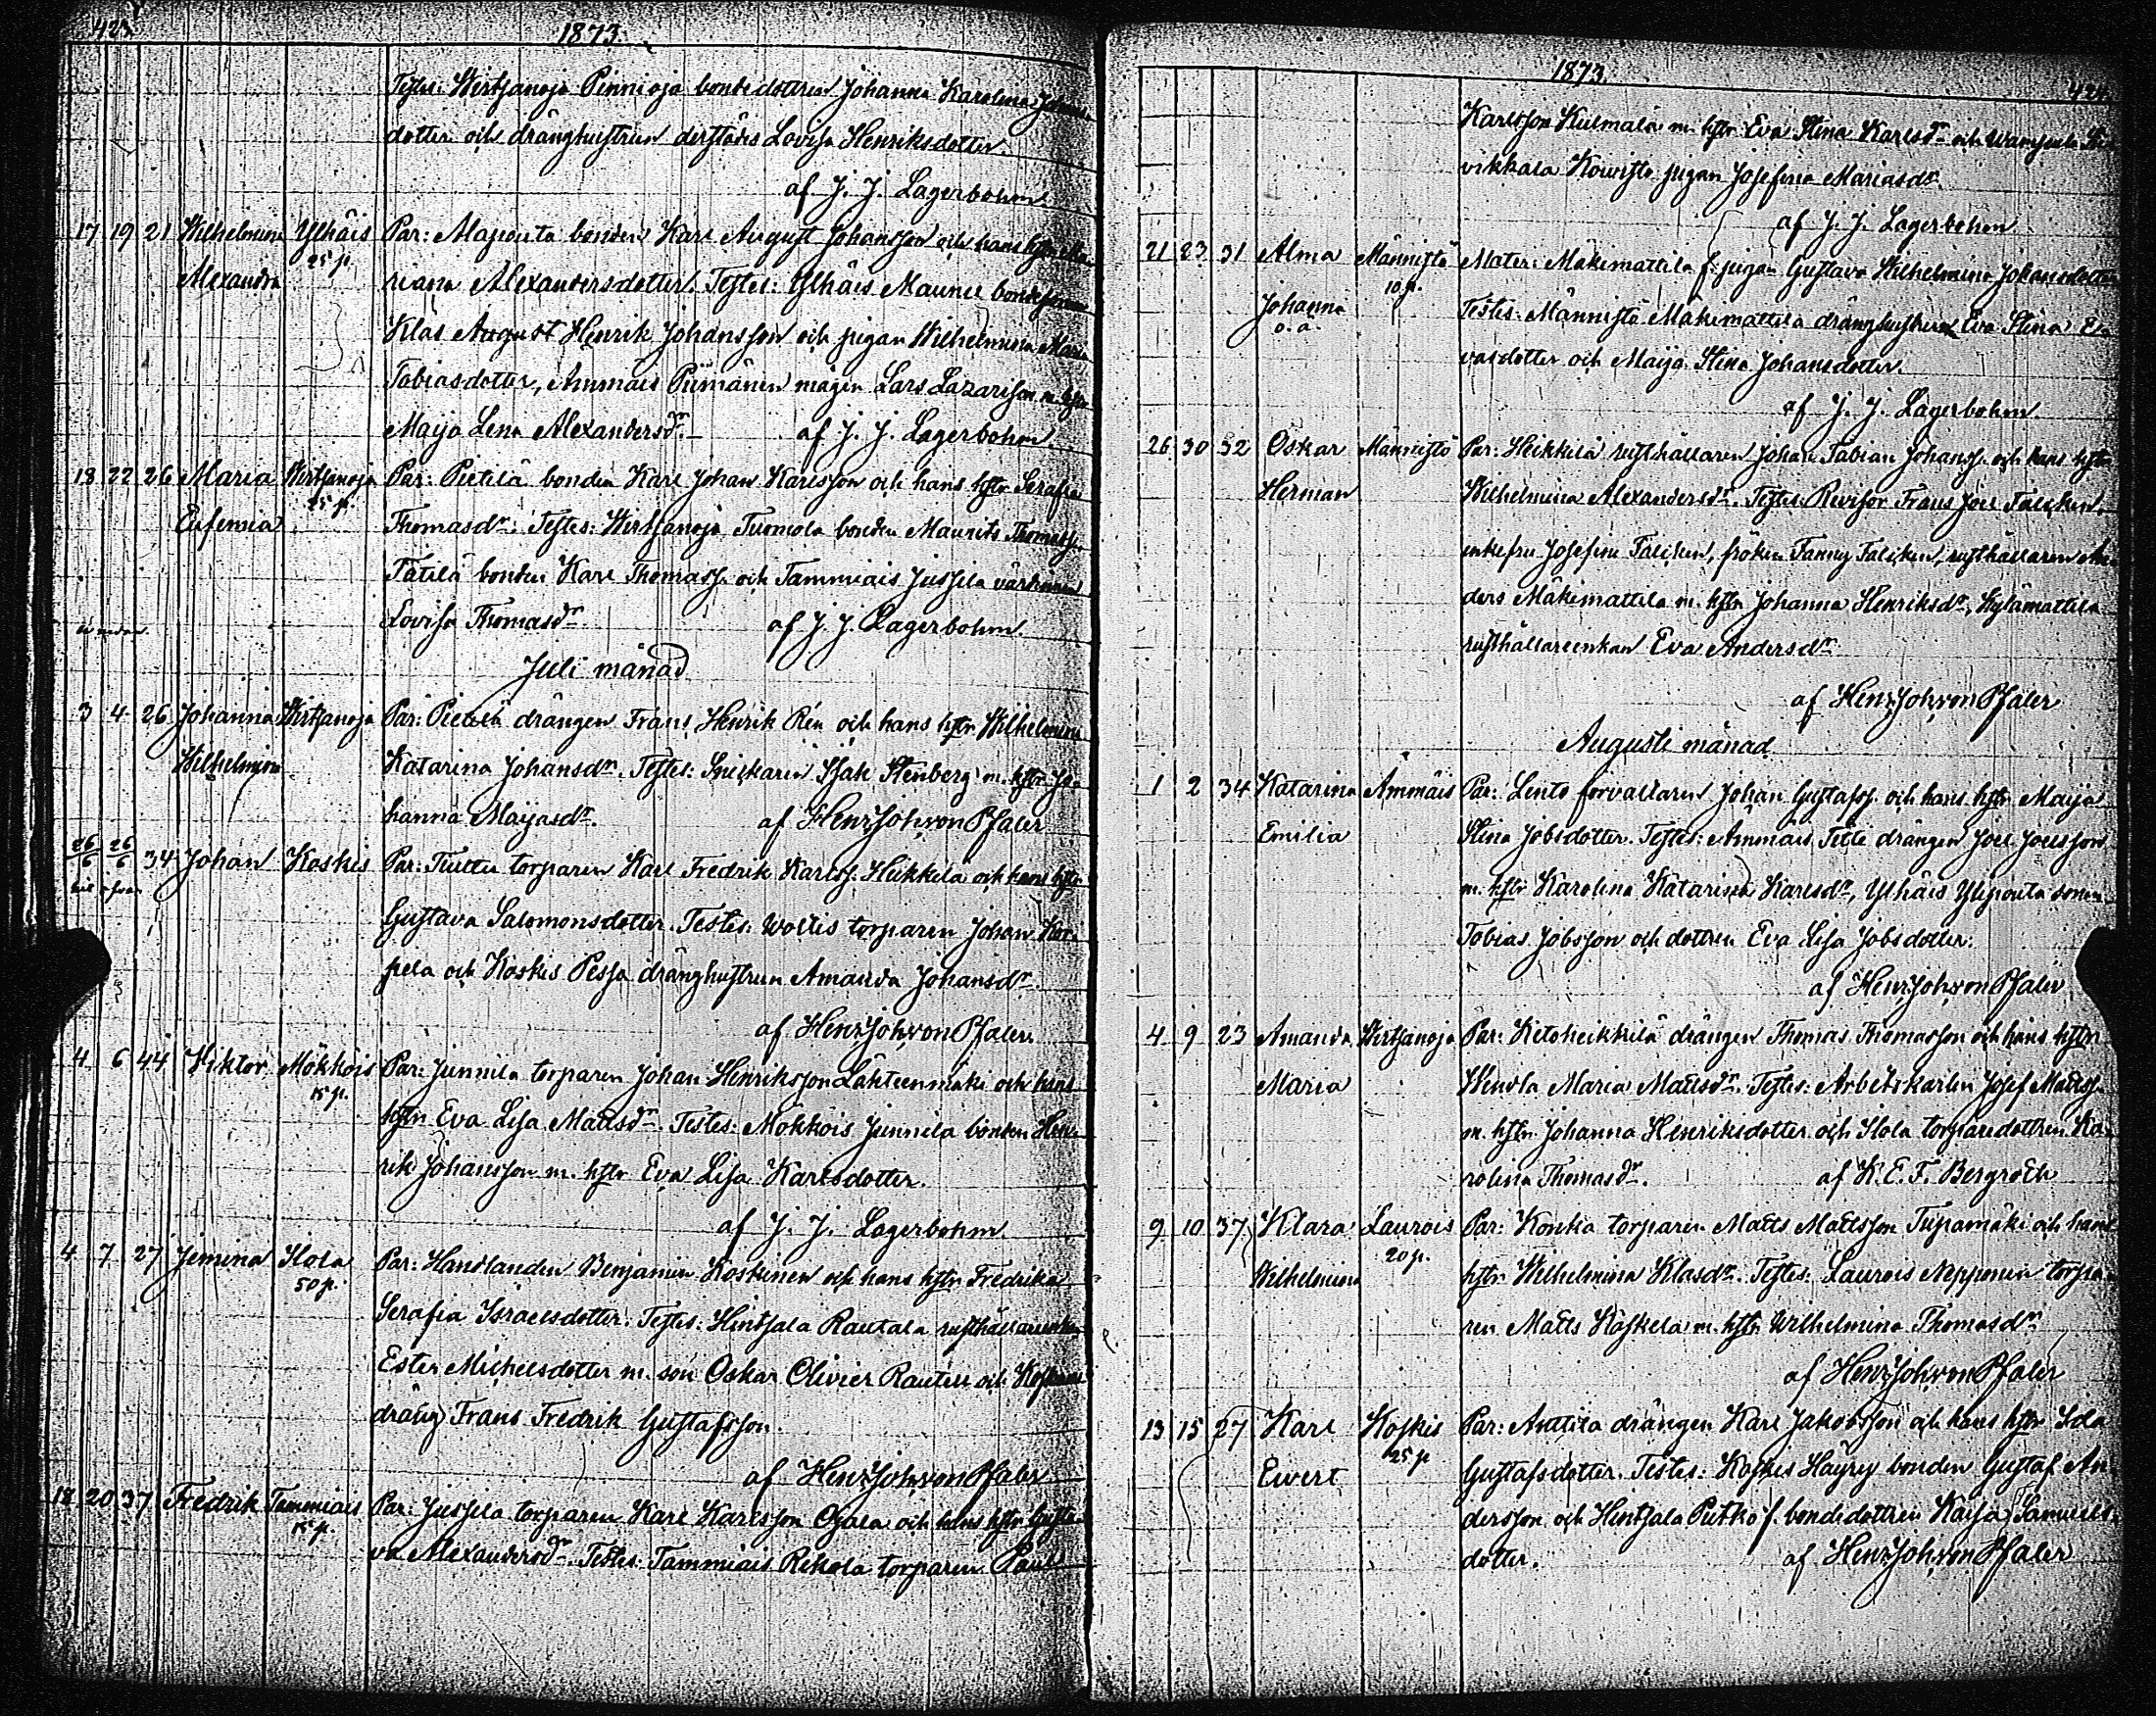 423
1873.
Testes: Wirtsanoja Pinnioja bondedottren Johanna Karolina
dotter och dränghustrun derstädes Lovisa Henriksdotter.
af J. J. Lagerbohm.
17 19 21 Wilhelmina Ylhäis Par: Mapouta bonden Karl August Johansson och hans hstr Ma
Alexandra 25 p. riana Alexandersdotter. Testes: Ylhäis Maunu
Klas August Henrik Johansson och pigan Wilhelmina Maria
Tobiasdotter, Ammäis Piimänen mågen Lars Lazarisson m. hstr
Maija Lena Alexandersdr. af J. J. Lagerbohm.
18 22 26 Maria Wirtsanoja Par: Pietilä bonden Karl Johan Karlsson och hans hstr Serafia
Eufemia 25 p. Thomasdr. Testes: Wirtsanoja Tuomola bonden Maurits Thomass.
Tätilä bonden Karl Thomass. och Tammiais Jussila värdinnan
Lovisa Thomasdr. af J. J. Lagerbohm.
Juli månad
3 4 26 Johanna Wirtsanoja Par: Pietilä drängen Frans Henrik Rén och hans hstr Wilhelmina
Wilhelmina Katarina Johansdr. Testes: Snickaren Isak Stenberg m. hstr Jo-
hanna Maijasdr. af Henr. Joh. von Pfaler
26/6 26/6 34 Johan Koskis Par: Tuittu torparen Karl Fredrik Karlss. Heikkilä och hans hstr
Gustava Salomonsdotter. Testes: Woltis torparen Johan Kor-
pela och Koskis Pessa dränghustrun Amanda Johansdr.
af Henr. Joh. von Pfaler.
4 6 44 Wiktor Mökköis Par: Junnila torparen Johan Henriksson Lähteenmäki och hans
15 p. hstr Eva Lisa Mattsdr. Testes: Mökköis Junnila bonden Hen-
rik Johansson m. hstr Eva Lisa Karlsdotter.
af J. J. Lagerbohm.
4 7 27 Jemina Ilola Par: Handlanden Benjamin Koskinen och hans hstr Fredrika
50 p. Serafia Israelsdotter. Testes: Hintsala Rautala rusthållareenkan
Ester Michelsdotter m. son Oskar Olivier Rautell och
dräng Frans Fredrik Gustafsson.
af Henr. Joh. von Pfaler
18 20 37 Fredrik Tammiais Par: Jussila torparen Karl Karlsson Ojala och hans hstr Gusta-
15 p. va Alexandersdr. Testes: Tammiais Rekola torparen Paul
1873.
424.
Karlsson Kulmala m. hstr Eva Stina Karlsdr och
vikkala Kouvisto pigan Josefina Mariasdr.
af J. J. Lagerbohm
21 23 31 Alma Männistö Mater: Mäkimattila f. pigan Gustava Wilhelmina Johansdotter
Johanna 10 p. Testes: Männistö Mäkimattila dränghustrun Eva Stina E-
o. ä. vasdotter och Maija Stina Johansdotter.
af J. J. Lagerbohm
26 30 32 Oskar Männistö Par: Heikkilä rusthållaren Johan Fabian Johanss. och hans hstr
Herman Wilhelmina Alexandersdr. Testes: Revisor Frans Joel Falcken,
enkefru Josefina Falcken, fröken Fanny Falcken, rusthållaren An-
ders Mäkimattila m. hstr Johanna Henriksdr, Kylämattila
rusthållareenkan Eva Andersdr.
af Henr. Joh. von Pfaler
Augusti månad.
1 2 34 Katarina Ammäis Par: Lento förvaltaren Johan Gustafss. och hans hstr Maija
Emilia Stina Jobsdotter. Testes: Ammäis drängen Joel Joelsson
m. hstr Karolina Katarina Karlsdr, Ylhäis Ylipouta sonen
Tobias Jobsson och dottren Eva Lisa Jobsdotter.
af Henr. Joh. von Pfaler
4 9 23 Amanda Wirtsanoja Par: Ketoheikkilä drängen Thomas Thomasson och hans hstr
Maria Wendla Maria Mattsdr. Testes: Arbetskarlen Josef Mattss.
m. hstr Johanna Henriksdotter och Ilola torparedottren Ka-
rolina Thomasdr. af K. E. F. Bergroth
9 10 37 Klara Laurois Par: Konka torparen Matts Mattsson Tupamäki och hans
Wilhelmina 20 p. hstr Wilhelmina Klasdr. Testes: Laurois Nepponen torpa-
ren Matts Koskela m. hstr Wilhelmina Thomasdr.
af Henr. Joh. von Pfaler
13 15 27 Karl Koskis Par: Anttila drängen Karl Jakobsson och hans hstr Ida
Ewert 25 p Gustafsdotter. Testes: Koskis Häyry bonden Gustaf An
dersson och Hintsala Putko f. bondedottren Kaisa Samuels-
dotter. af Henr. Joh. von Pfaler